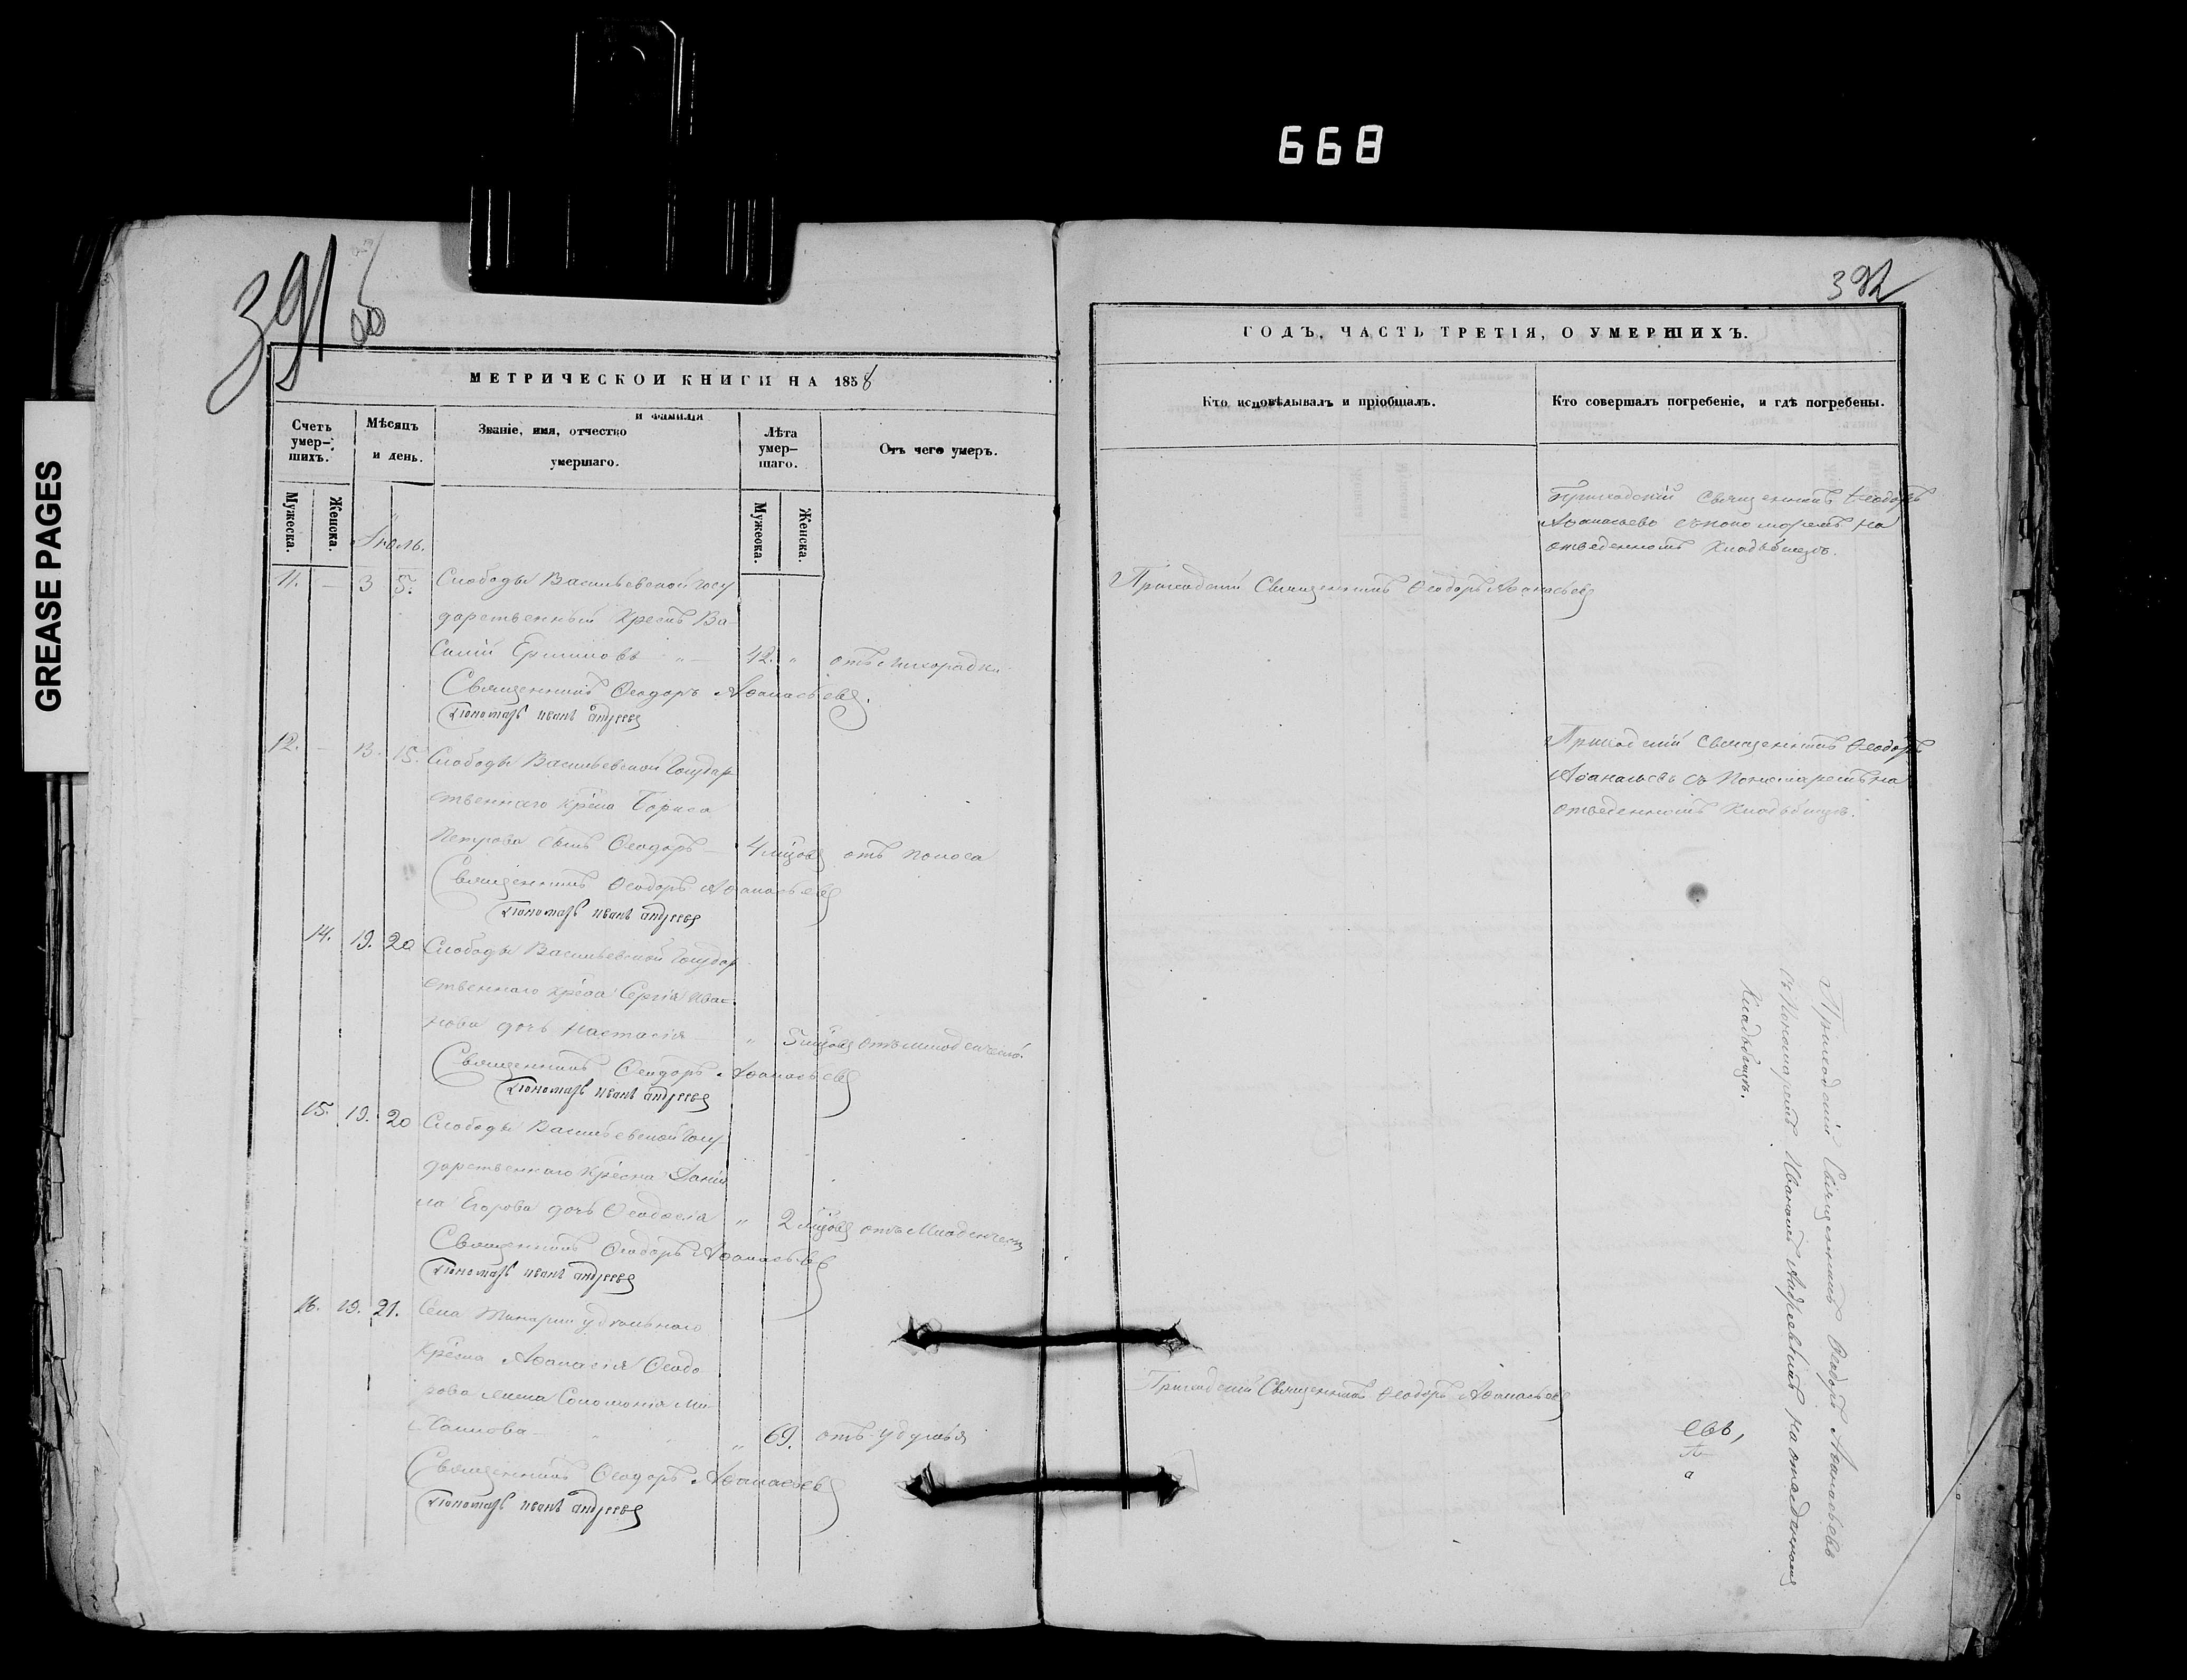 668
GREASE PAGES
391 об
МЕТРИЧЕСКОЙ КНИГИ НА 1858
Счетъ умер-
шихъ.
Мужеска.
Женска.
Мѣсяцъ
и день.
Званіе, имя, отчество и фамилія
умершаго.
Лѣта
умер-
шаго.
Мужеска.
Женска.
Отъ чего умеръ.
Іюль.
11. — 3 5. Слободы Васильевской госу
дарственный крестъ Ва-
силій 42. „ отъ лихорадки
Священникъ Ѳеодоръ Аѳанасьевъ.
Пономарь Иванъ Андреевъ
12. — 13. 15. Слободы Васильевской Государ
ственнаго крѣсна Бориса
Петрова сынъ Ѳеодоръ — 4 мцовъ отъ поноса
Священникъ Ѳеодоръ Аѳанасьевъ
Пономарь Иванъ Андреевъ
14. 19. 20 Слободы Васильевской Государ
ственнаго крѣсна Сергія Ива-
нова дочь Настасія „ 5 мцовъ отъ младенческой
Священникъ Ѳеодоръ Аѳанасьевъ
Пономарь Иванъ Андреевъ
15. 19. 20 Слободы Васильевской Госу-
дарственнаго крѣсна Данiи
ла Егорова дочь Ѳеодосiя „ 2 мцовъ отъ Младенческ
Священникъ Ѳеодоръ Аѳанасьевъ
Пономарь Иванъ Андреевъ
16. 19. 21. Села удѣльнаго
крѣсна Аѳанасія Ѳеодо
рова жена Соломонія Ми-
хаилова „ 69. отъ удушья
Священникъ Ѳеодоръ Аѳанасьевъ
Пономарь Иванъ Андреевъ
392
ГОДЪ, ЧАСТЬ ТРЕТІЯ, О УМЕРШИХЪ.
Кто исповѣдывалъ и пріобщалъ.
Кто совершалъ погребеніе, и гдѣ погребены.
Приходскій Священникъ Ѳеодоръ
Аѳанасьевъ съ пономаремъ на
отведенномъ кладбищѣ.
Приходскій Священникъ Ѳеодоръ Аѳанасьевъ
Приходскій Священникъ Ѳеодоръ
Аѳанасьевъ съ Пономаремъ на
отведенномъ кладбищѣ.
Приходскій Священникъ Ѳеодоръ Аѳанасьевъ
съ Пономаремъ Иваномъ Андреевымъ на отведенномъ
кладбищѣ.
Приходскій Священникъ Ѳеодоръ Аѳанасьевъ
евъ,
а